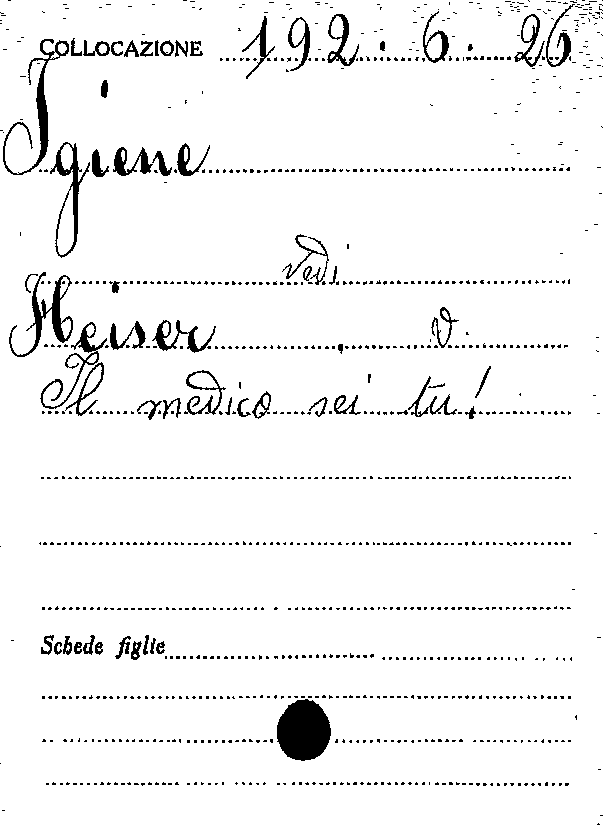 COLLOCAZIONE 192.6.26
Igiene
vedi
Heiser, V.
Il medico sei tu!
Schede figlie